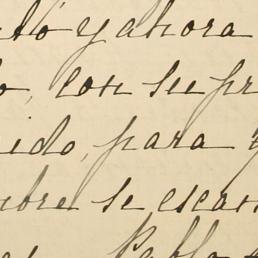 tó y ahora
o, con su pr
ido, para y
bre se escan
Pablo